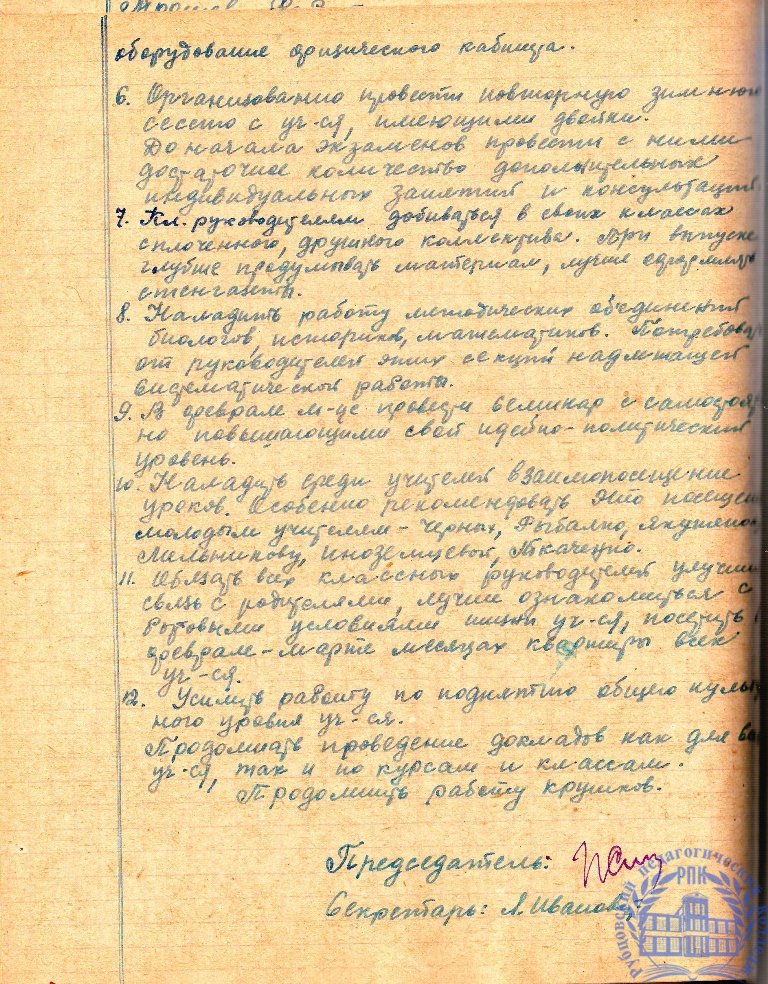 оборудование физического кабинета.
6. Организованно провести повторную зимнюю
сессию с уч-ся, имеющими двойки.
До начала экзаменов провести с ними
достаточное количество дополнительных
индивидуальных занятий и консультаций.
7. Кл. руководителям добиваться в своих классах
сплоченного, дружного коллектива. При выпуске
глубже продумывать материал, лучше оформлять
стенгазеты.
8. Наладить работу методических объединений
биологов, историков, математиков. Потребова
от руководителей этих секций надлежащей
систематической работы.
9. В феврале м-це провести семинар с самостоят
но повышающими свой идейно-политический
уровень.
10. Наладить среди учителей взаимопосещение
уроков. Особенно рекомендовать это посещен
молодым учителям - Черных, Рыбалко,
Мельникову, Иноземцевой, Ткаченко.
11. Обязать всех классных руководителей улучши
связь с родителями, лучше ознакомиться с
бытовыми условиями жизни уч-ся, посетить в
феврале-марте месяцах квартиры всех
уч-ся.
12. Усилить работу по поднятию общего культ
ного уровня уч-ся.
Продолжать проведение докладов как для вс
уч-ся, так и по курсам и классам.
Продолжить работу кружков.
Председатель:
Секретарь: Л. Иванова
Рубцовский педагогический колледж
РПК